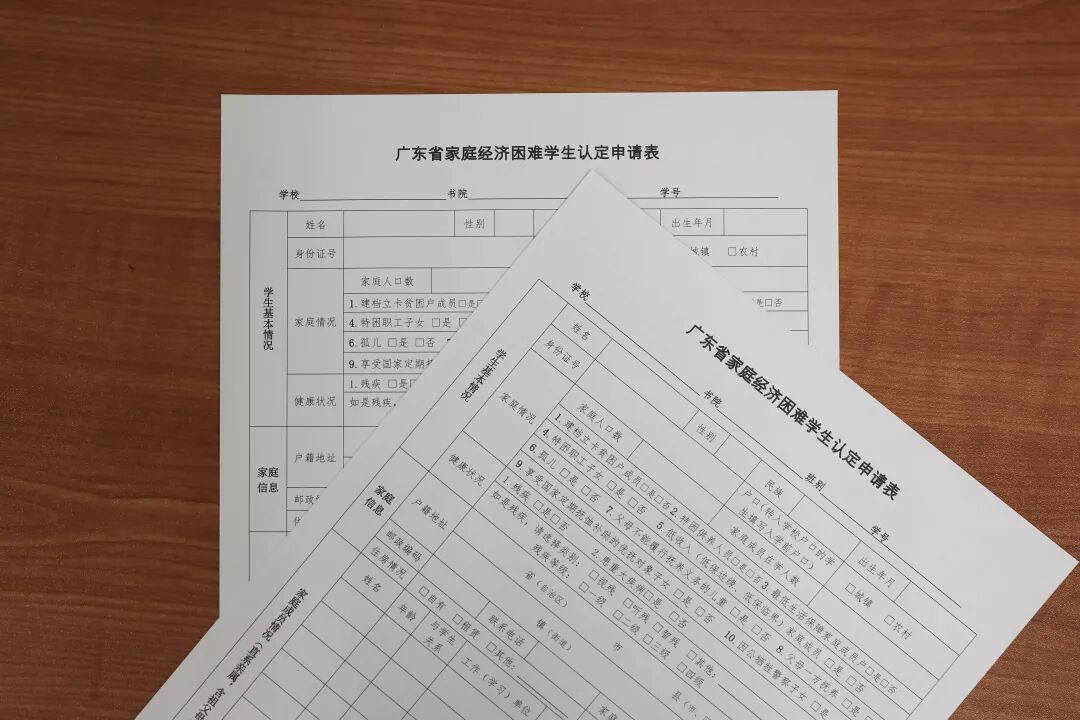 广东省家庭经济困难学生认定申请表
学校 书院 学号
姓名 性别 出生年月
身份证号 城镇 □农村
学生基本情况
家庭情况
家庭人口数
1.建档立卡贫困户成员□是□ □是□否
4.特困职工子女 □是 □
6.孤儿 □是 □否
9.享受国家定期
健康状况
1.残疾 □是□
如是残疾,
家庭信息
户籍地址
邮政
广东省家庭经济困难学生认定申请表
学校 书院 班别 学号
学生基本情况
姓名 性别 民族 出生年月
身份证号 户口(转入学校户口的学生填写入学前户口) □城镇 □农村
家庭情况
家庭人口数 家庭成员在学人数
1.建档立卡贫困户成员□是□否 2.特困供养人员□是□否 3.最低生活保障家庭成员户□是□否
4.特困职工子女 □是 □否 5.低收入(低保边缘、低保临界)家庭成员 □是 □否
6.孤儿 □是 □否 7.父母不能履行抚养义务的儿童 □是 □否 8.父母一方抚养 □是
9.享受国家定期抚恤补助的优抚对象子女 □是 □否 10.因公牺牲警察子女 □是
健康状况
1.残疾 □是□否 2.患重大疾病□是 □否
如是残疾,请选择类别: □视残 □听残 □智残 □其他:
残疾等级: □一级 □二级 □三级 □四级
家庭信息
户籍地址 省(自治区) 市 县(市、
镇(街道)
邮政编码 联系电话
住房情况 □自有 □租赁 □其他:
家庭成员情况(直系亲属,含祖父母
姓名 年龄 与学生关系 工作(学习)单位